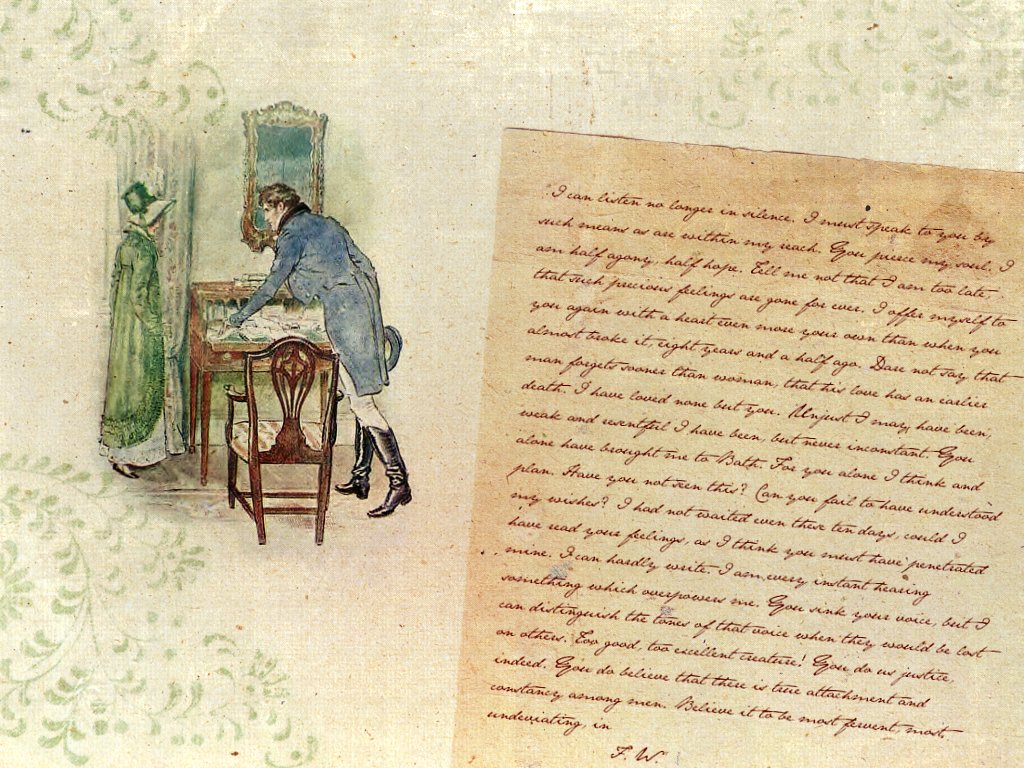 I can listen no longer in silence. I must speak to you by
such means as are within my reach. You pierce my soul. I
am half agony, half hope. Tell me not that I am too late,
that such precious feelings are gone for ever. I offer myself to
you again with a heart even more your own than when you
almost broke it eight years and a half ago. Dare not say that
man forgets sooner than woman, that his love has an earlier
death. I have loved none but you. Unjust I may have been,
weak and resentful I have been, but never inconstant. You
alone have brought me to Bath. For you alone I think and
plan. Have you not seen this? Can you fail to have understood
my wishes? I had not waited even these ten days, could I
have read your feelings, as I think you must have penetrated
mine. I can hardly write. I am every instant hearing
something which overpowers me. You sink your voice, but I
can distinguish the tones of that voice when they would be lost
on others. Too good, too excellent creature! You do us justice,
indeed. You do believe that there is true attachment and
constancy among men. Believe it to be most fervent, most
undeviating, in
F. W.